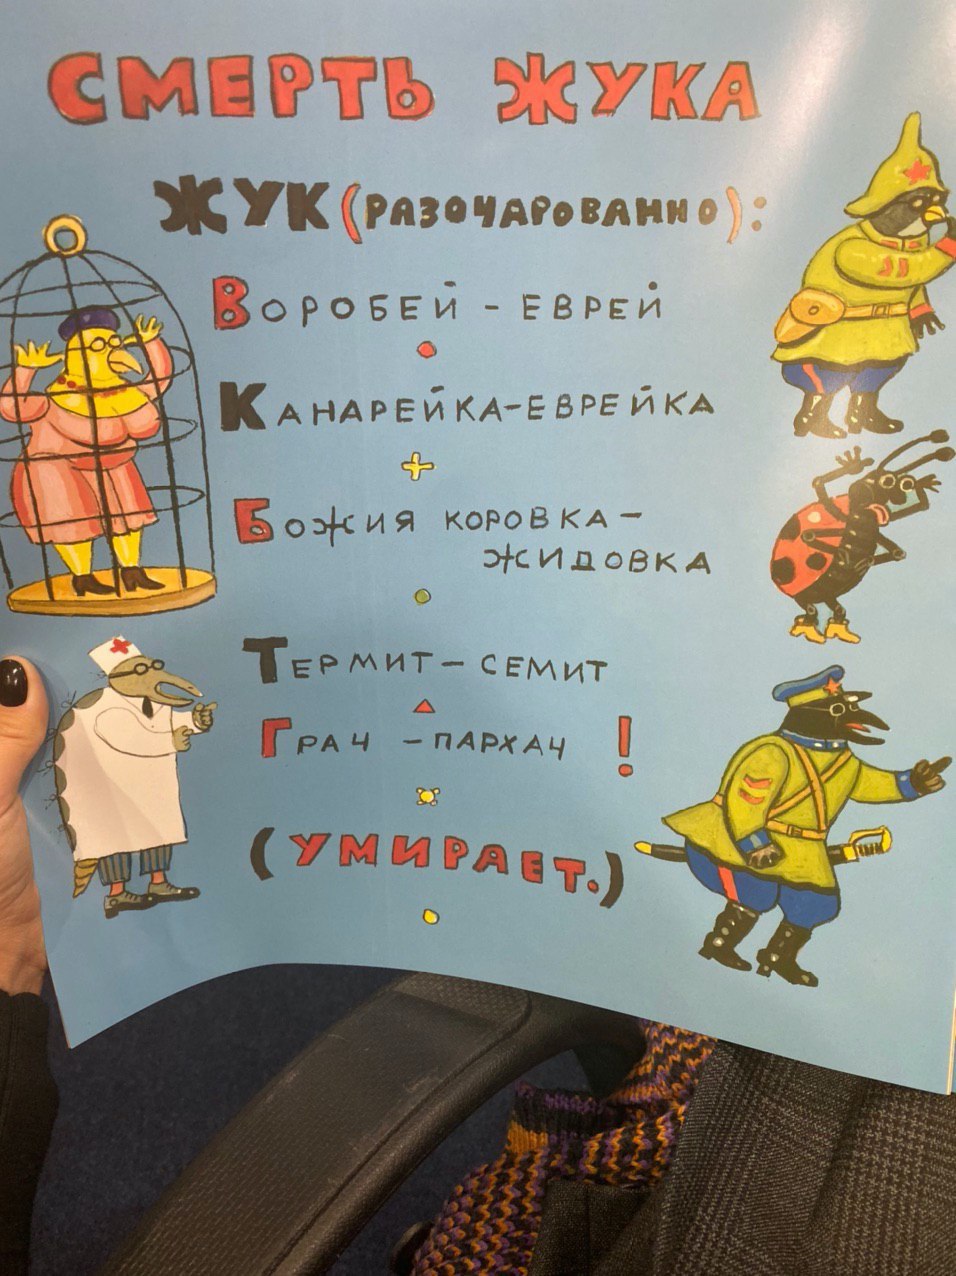 СМЕРТЬ ЖУКА
ЖУК (РАЗОЧАРОВАННО):
ВОРОБЕЙ - ЕВРЕЙ
КАНАРЕЙКА-ЕВРЕЙКА
БОЖИЯ КОРОВКА-
ЖИДОВКА
ТЕРМИТ - СЕМИТ
ГРАЧ - ПАРХАЧ !
(УМИРАЕТ.)